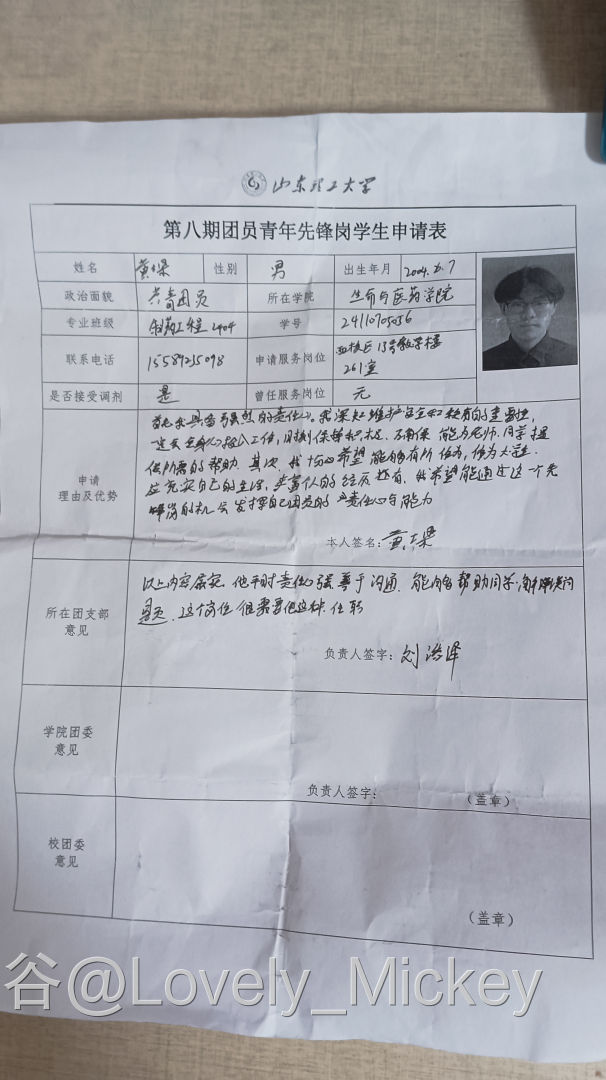 山东理工大学
第八期团员青年先锋岗学生申请表
姓名 黄 性别 男 出生年月
政治面貌 共青团员 所在学院 生命与医药学院
专业班级 制药工程2404 学号 24110705036
联系电话 15589235098 申请服务岗位 西校区13号教学楼
261室
是否接受调剂 是 曾任服务岗位 无
申请
理由及优势
首先我具备强烈的责任心。我深知维护安全和秩序的重要性,
供所需的帮助。其次,我十分希望能够有所作为,作为大学生
应充实自己的生活,丰富个人的经历 我希望能通过这一个先
锋岗的机会发挥自己的责任心与能力
本人签名:黄
所在团支部
意见
以上内容属实,他平时责任心强善于沟通,能够帮助同学解决问
题,这个岗位很需要他这种任职
负责人签字:刘浩泽
学院团委
意见
负责人签字:
(盖章)
校团委
意见
(盖章)
谷@Lovely_Mickey